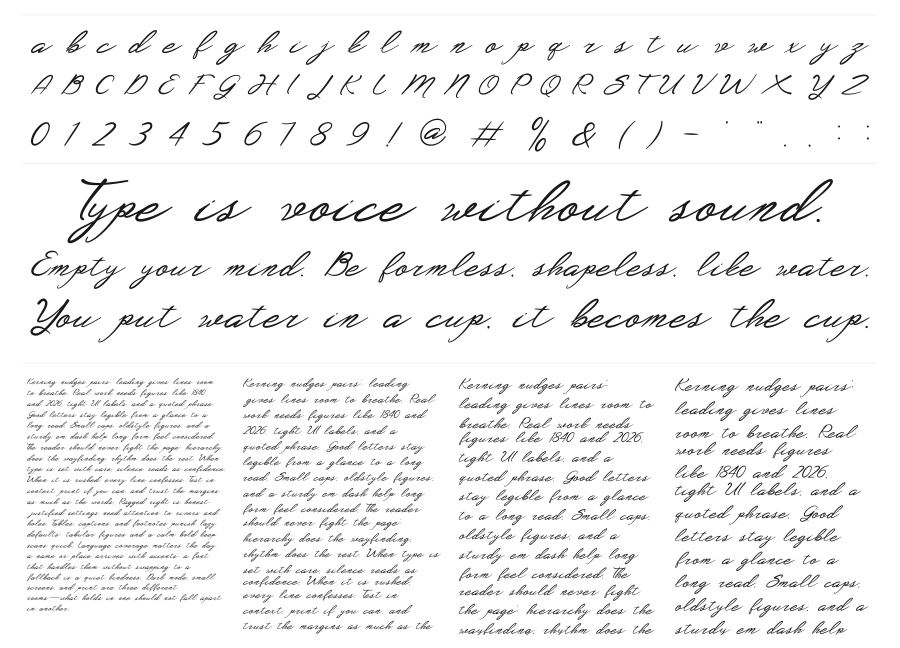 a b c d e f g h i j k l m n o p q r s t u v w x y z
A B C D E F G H I J K L M N O P Q R S T U V W X Y Z
0 1 2 3 4 5 6 7 8 9 ! @ # % & ( ) - ' " . , : ;
Type is voice without sound.
Empty your mind. Be formless, shapeless, like water.
You put water in a cup, it becomes the cup.
Kerning nudges pairs; leading gives lines room
to breathe. Real work needs figures like 1840
and 2026, tight UI labels, and a quoted phrase.
Good letters stay legible from a glance to a
long read. Small caps, oldstyle figures, and a
sturdy em dash help long form feel considered.
The reader should never fight the page: hierarchy
does the wayfinding, rhythm does the rest. When
type is set with care, silence reads as confidence.
When it is rushed, every line confesses. Test in
context, print if you can, and trust the margins
as much as the words. Ragged right is honest
; justified settings need attention to rivers and
holes. Tables, captions, and footnotes punish lazy
defaults; tabular figures and a calm bold keep
scans quick. Language coverage matters the day
a name or place arrives with accents; a font
that handles them without swapping to a
fallback is a quiet kindness. Dark mode, small
screens, and print are three different
rooms—what holds in one should not fall apart
in another.
Kerning nudges pairs; leading
gives lines room to breathe. Real
work needs figures like 1840 and
2026, tight UI labels, and a
quoted phrase. Good letters stay
legible from a glance to a long
read. Small caps, oldstyle figures,
and a sturdy em dash help long
form feel considered. The reader
should never fight the page:
hierarchy does the wayfinding,
rhythm does the rest. When type is
set with care, silence reads as
confidence. When it is rushed,
every line confesses. Test in
context, print if you can, and
trust the margins as much as the
Kerning nudges pairs;
leading gives lines room to
breathe. Real work needs
figures like 1840 and 2026,
tight UI labels, and a
quoted phrase. Good letters
stay legible from a glance
to a long read. Small caps,
oldstyle figures, and a
sturdy em dash help long
form feel considered. The
reader should never fight
the page: hierarchy does the
wayfinding, rhythm does the
Kerning nudges pairs;
leading gives lines
room to breathe. Real
work needs figures
like 1840 and 2026,
tight UI labels, and a
quoted phrase. Good
letters stay legible
from a glance to a
long read. Small caps,
oldstyle figures, and a
sturdy em dash help